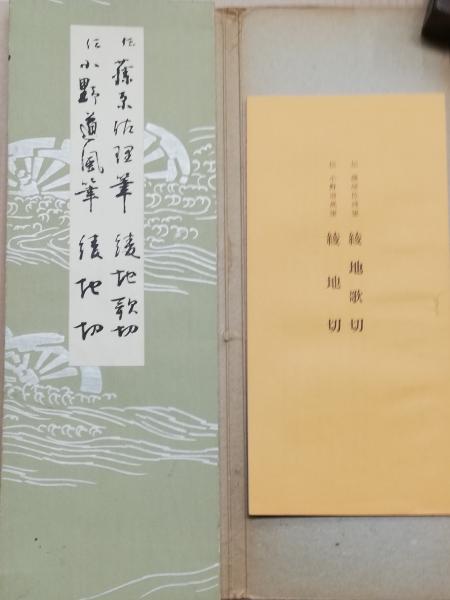 伝 藤原佐理筆 綾地歌切
伝 小野道風筆 綾地切
伝 藤原佐理筆 綾地歌切
伝 小野道風筆 綾地切